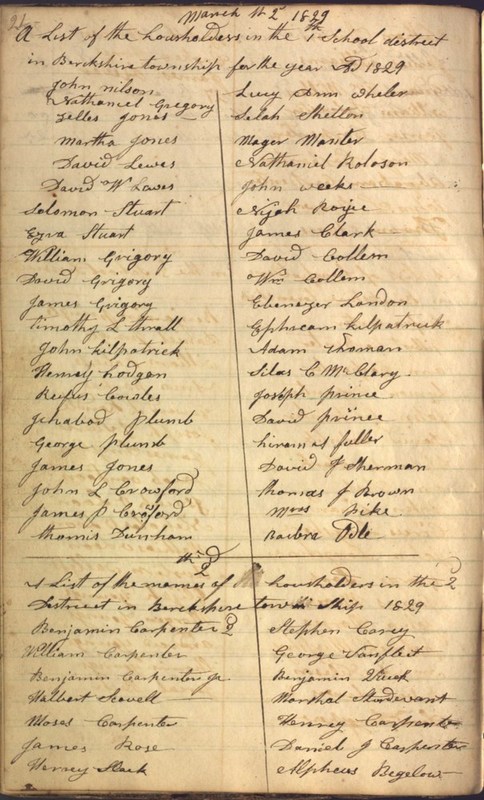 21
March th 2d 1829
A List of the housholders in the 1th School district
in Berckshire township for the year AD 1829
John nilson
Nathaniel Gregory
Zelles Jones
Martha Jones
David Lewes
David W Lewes
Solomon Stuart
Ezra Stuart
William Grigory
David Grigory
James Grigory
Timothy L thrall
John kilpatrick
Henrey hodgen
Rufus
Ichabod Plumb
George plumb
James Jones
John L Crowford
James P Croford
thomis Dunham
Lucy Ann wheler
Selah Shelton
Mager Manter
Nathaniel Roloson
John weeks
James Clark
David Collem
Wm Collem
Ebenezer Landon
Ephream kilpatrick
Adam thoman
Silas C McClary
Joseph prince
David prince
hiram s fuller
David J Sherman
thomas J Brown
Mrs pike
Barbra Pile
th 2d
A List of the names of the housholders in the 2d
District in Berckshire town Ship 1829
Benjamin Carpenter
William Carpenter
Benjamin Carpenter Jr
Halbert Scovell
Moses Carpenter
James Rose
Harvey Slack
Stephen Carey
George Vanfleit
Benjamin
Marshal Sturdevant
Henrey Carpenter
Daniel J Carpenter
Alpheus Bigelow